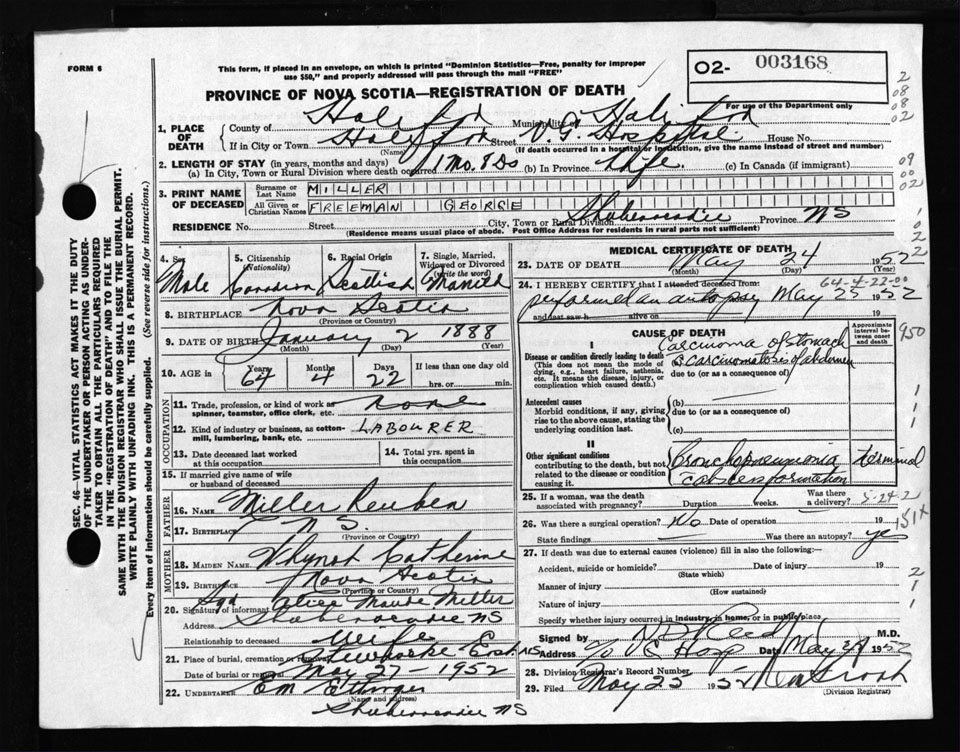 FORM 6
This form, if placed in an envelope, on which is printed "Dominion Statistics—Free, penalty for improper
use $50," and properly addressed will pass through the mail "FREE"
O2- 003168
For use of the Department only
PROVINCE OF NOVA SCOTIA—REGISTRATION OF DEATH
1. PLACE OF DEATH
County of Halifax Municipality of Halifax
If in City or Town Halifax Street V. G. Hospital House No.
(Name) (If death occurred in a hospital or institution, give the name instead of street and number)
2. LENGTH OF STAY (in years, months and days)
(a) In City, Town or Rural Division where death occurred 1 Mo. 8 Ds (b) In Province Life (c) In Canada (if immigrant)
3. PRINT NAME OF DECEASED
Surname or Last Name MILLER
All Given or Christian Names FREEMAN GEORGE
RESIDENCE No. Street City, Town or Rural Division Shubenacadie Province NS
(Residence means usual place of abode. Post Office Address for residents in rural parts not sufficient)
4. Sex 5. Citizenship (Nationality) 6. Racial Origin 7. Single, Married, Widowed or Divorced (write the word)
Male Canadian Scottish Married
8. BIRTHPLACE Nova Scotia
(Province or Country)
9. DATE OF BIRTH January 2 1888
(Month) (Day) (Year)
10. AGE in Years Months Days If less than one day
64 4 22 hrs. or min.
OCCUPATION
11. Trade, profession, or kind of work as spinner, teamster, office clerk, etc. none
12. Kind of industry or business, as cotton-mill, lumbering, bank, etc. LABOURER
13. Date deceased last worked at this occupation 14. Total yrs. spent in this occupation
15. If married give name of wife or husband of deceased
FATHER
16. Name Miller Reuben
17. Birthplace N.S.
(Province or Country)
MOTHER
18. MAIDEN NAME Whynot Catherine
19. BIRTHPLACE Nova Scotia
(Province or Country)
20. Signature of informant Sgd Alice Maude Miller
Address Shubenacadie NS
Relationship to deceased Wife
21. Place of burial, cremation or removal Stewiacke East NS
Date of burial or removal May 27 - 1952
22. UNDERTAKER EM Ettinger
(Name and address)
Shubenacadie NS
MEDICAL CERTIFICATE OF DEATH
23. DATE OF DEATH May 24 1952
(Month) (Day) (Year)
64-4-22-00
24. I HEREBY CERTIFY that I attended deceased from
performed an autopsy May 25 1952
and last saw h alive on
CAUSE OF DEATH
Approximate interval between onset and death
I
Disease or condition directly leading to death
(This does not mean the mode of dying, e.g., heart failure, asthenia, etc. It means the disease, injury, or complication which caused death.)
Carcinoma of stomach
carcinomatosis of abdomen
due to (or as a consequence of)
Antecedent causes
Morbid conditions, if any, giving rise to the above cause, stating the underlying condition last.
(b)
due to (or as a consequence of)
(c)
II
Other significant conditions contributing to the death, but not related to the disease or condition causing it.
Bronchopneumonia terminal
abscess formation
25. If a woman, was the death associated with pregnancy? Duration weeks. Was there a delivery?
5-24-2
26. Was there a surgical operation? No Date of operation 19
State findings Was there an autopsy? yes
151x
27. If death was due to external causes (violence) fill in also the following:—
Accident, suicide or homicide? Date of injury 19
(State which)
Manner of injury
(How sustained)
Nature of injury
Specify whether injury occurred in industry, in home, or in public place
Signed by M.D.
Address c/o V G Hosp Date May 1952
28. Division Registrar's Record Number
29. Filed May 25 1952
(Division Registrar)
SEC. 46—VITAL STATISTICS ACT MAKES IT THE DUTY
OF THE UNDERTAKER OR PERSON ACTING AS UNDER-
TAKER TO OBTAIN ALL THE PARTICULARS REQUIRED
IN THE "REGISTRATION OF DEATH" AND TO FILE THE
SAME WITH THE DIVISION REGISTRAR WHO SHALL ISSUE THE BURIAL PERMIT.
WRITE PLAINLY WITH UNFADING INK. THIS IS A PERMANENT RECORD.
Every item of information should be carefully supplied. (See reverse side for instructions.)
2
08
08
02
09
00
02
1
0
2
2
950
1
1
1
2
1
1